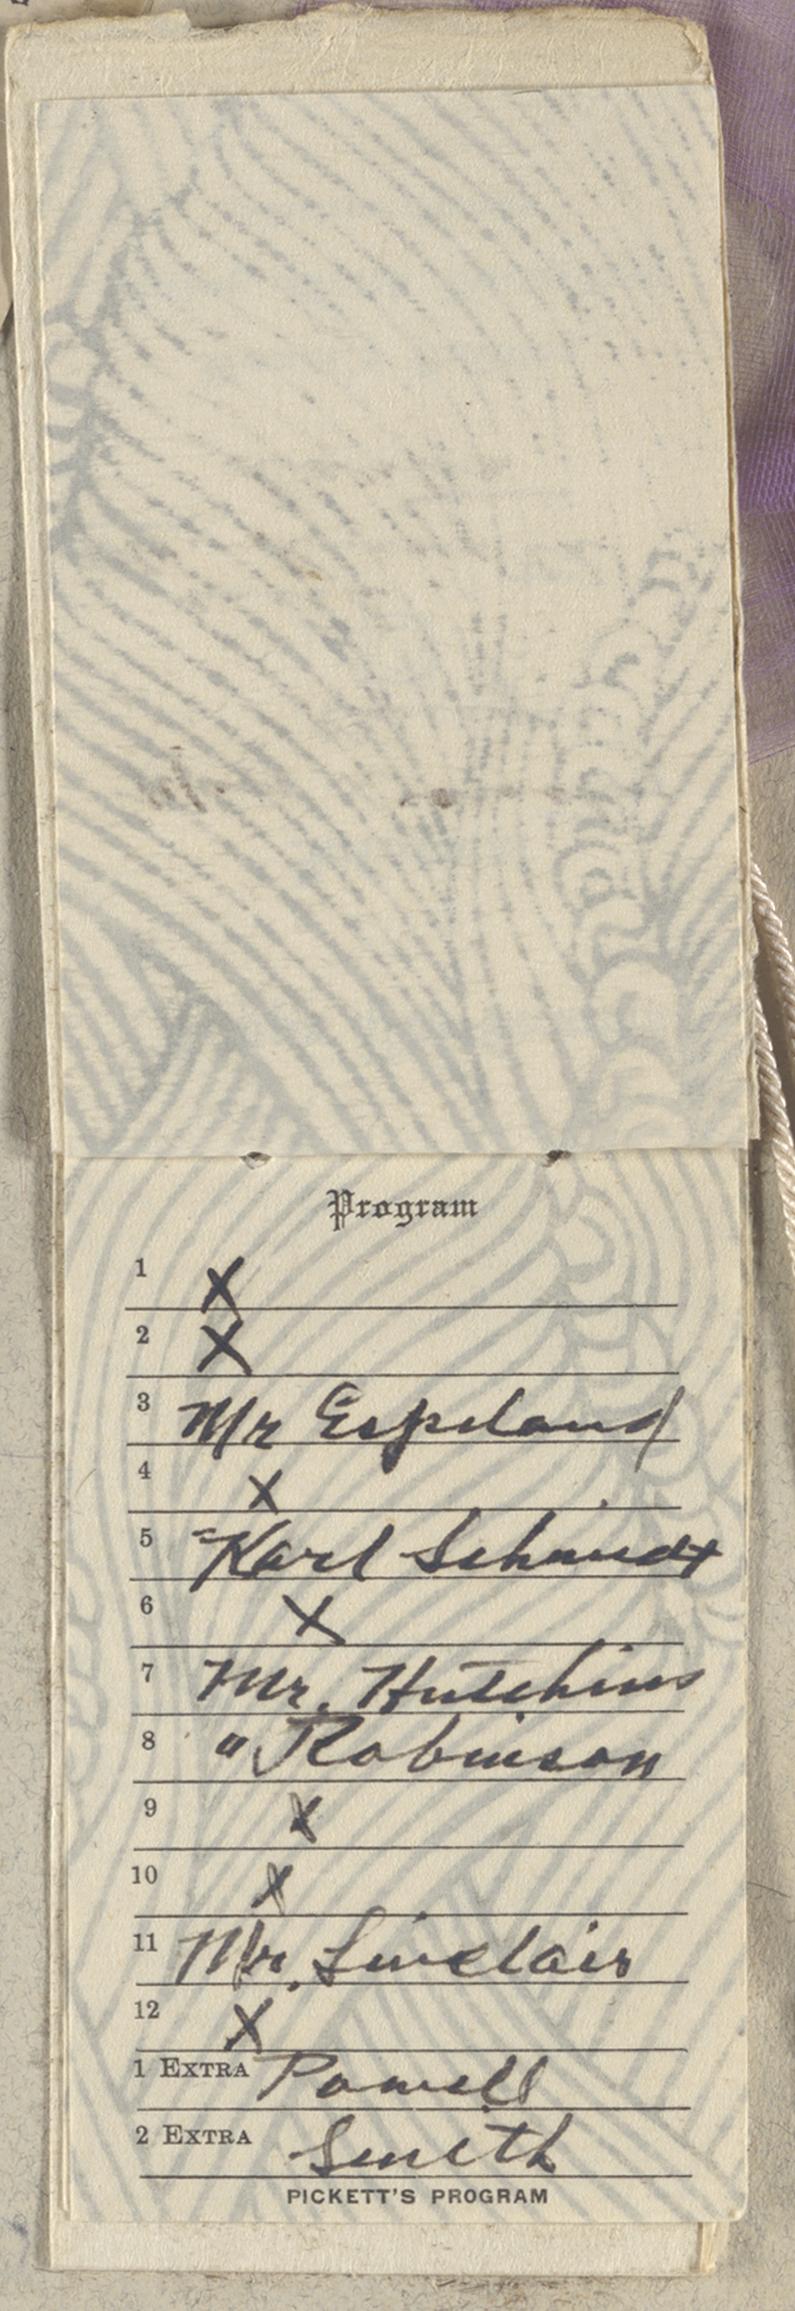 Program
1 X
2 X
3 Mr Espeland
4 X
5 Karl Schmidt
6 X
7 Mr. Hutchins
8 " Robinson
9 X
10 X
11 Mr. Sinclair
12 X
1 EXTRA Powell
2 EXTRA Smith
PICKETT'S PROGRAM